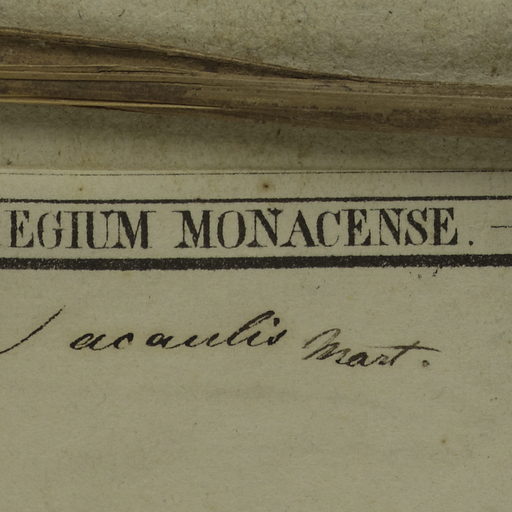 EGIUM MONACENSE.
acaulis Mart.